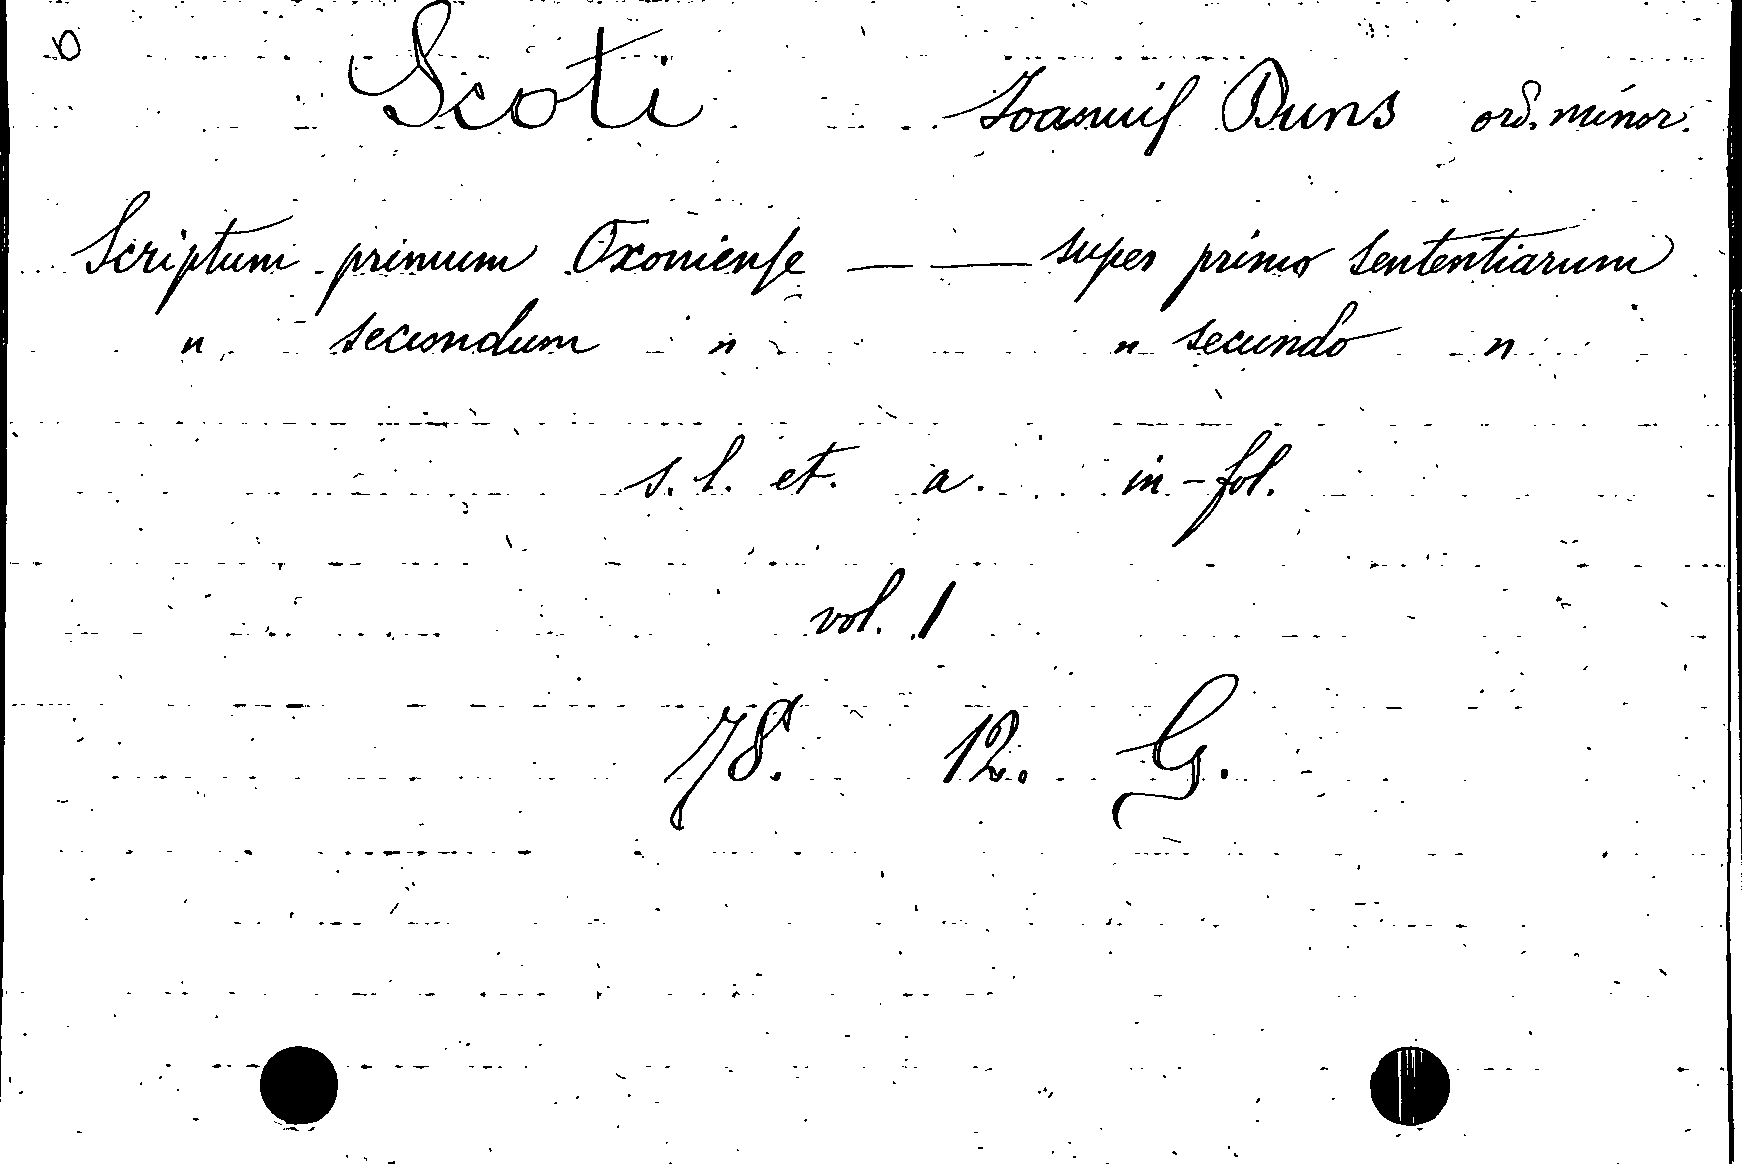 b
Scoti Joannis Duns ord. minor.
Scriptum primum Oxoniense — — super primo sententiarum
" secundum " " secundo "
s. l. et. a. in-fol.
vol. 1
78. 12. G.